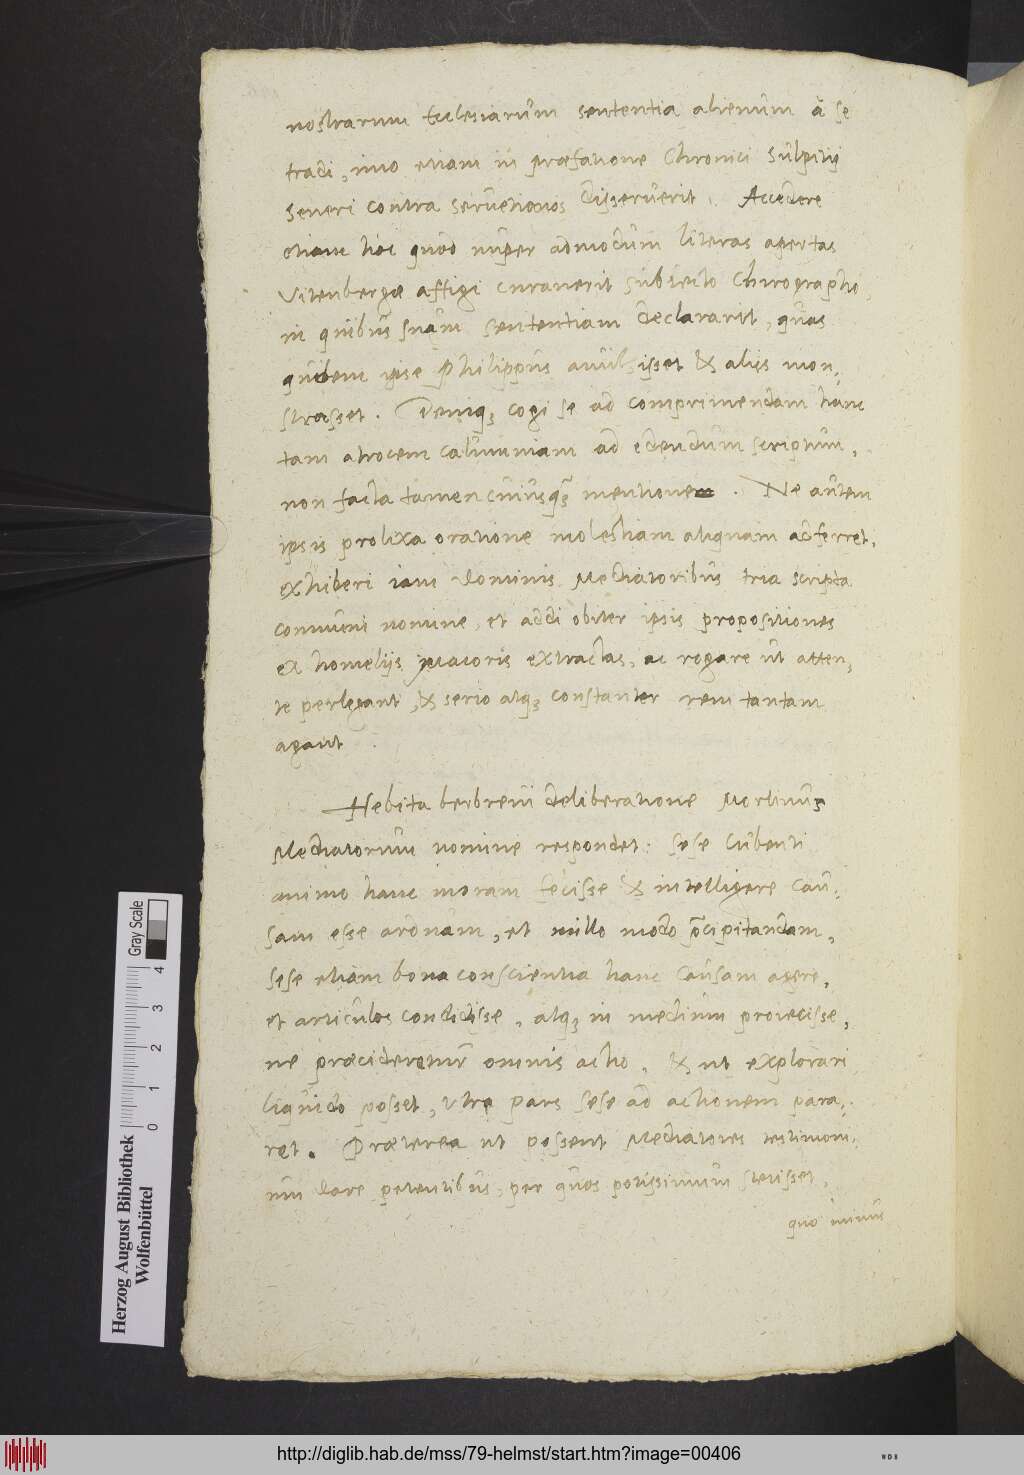 nostrarum Ecclesiarum sententia alienum à se
tradi, imo etiam in præfatione Chronici Sulpitij
Seueri contra Seruetianos disseruerit. Accedere
etiam hoc quod nuper admodum literas apertas
Vitenbergæ affigi curauerit subiecto Chirographo,
in quibus suam sententiam declararit, quas
quidem ipse Philippus auulsisset & alijs mon,
strasset. Deniq; cogi se ad comprimendam hanc
tam atrocem calumniam ad edendum scriptum,
non facta tamen cuiusq; mentione. Ne autem
ipsis prolixa oratione molestiam aliquam adferret,
exhiberi iam Dominis Mediatoribus tria scripta
communi nomine, et addi obiter ipsis propositiones
ex homelijs Maioris extractas, ac rogare ut atten,
te perlegant, & serio atq; constanter rem tantam
agant.
Habita perbreui deliberatione Morlinus
Mediatorum nomine respondet: Sese lubenti
animo hanc moram fecisse & intelligere cau,
sam esse arduam, et nullo modo præcipitandam,
sese etiam bona conscientia hanc causam agere,
et articulos condidisse, atq; in medium proiecisse,
ne præcideretur omnis actio, & ut explorari
liquido posset, utra pars sese ad actionem para,
ret. Præterea ut possent Mediatores testimoni,
um dare petentibus, per quos potissimum stetisset,
quo minus
Gray Scale
0 1 2 3 4
Herzog August Bibliothek
Wolfenbüttel
http://diglib.hab.de/mss/79-helmst/start.htm?image=00406